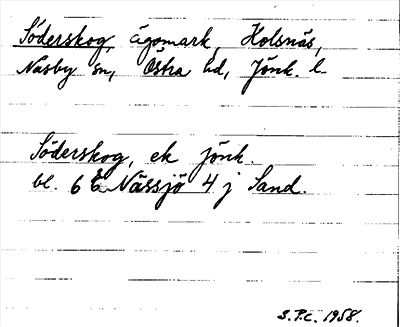 Söderskog, ägomark, Holsnäs,
Näsby sn, Östra hd, Jönk. l.
Söderskog, ek Jönk.
bl. 6 E Nässjö 4 j Sand.
S.P.C. 1958.